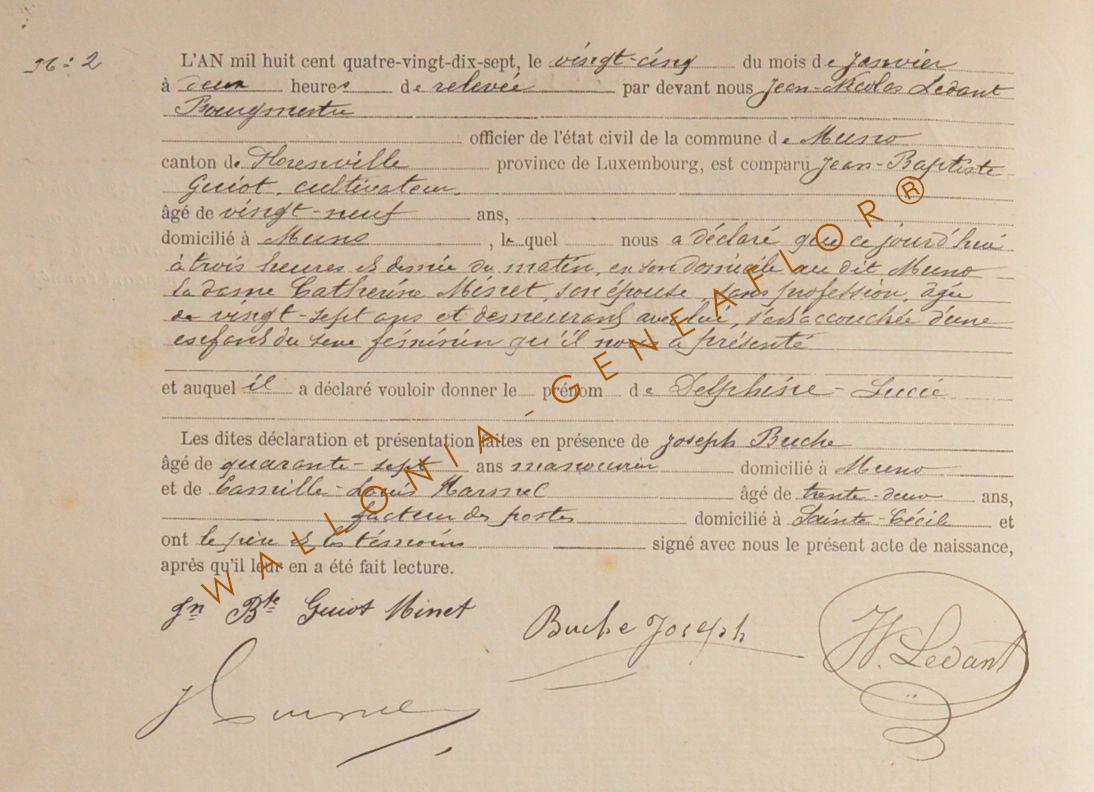 N° 2
L'AN mil huit cent quatre-vingt-dix-sept, le vingt-cinq du mois de janvier
à deux heures de relevée par devant nous Jean-Nicolas Ledant
Bourgmestre
officier de l'état civil de la commune de Muno
canton de Florenville province de Luxembourg, est comparu Jean-Baptiste
Guiot, cultivateur,
âgé de vingt-neuf ans,
domicilié à Muno, lequel nous a déclaré que ce jourd'hui
à trois heures et demie du matin, en son domicile au dit Muno
la dame Catherine Minet, son épouse, sans profession, âgée
de vingt-sept ans et demeurant avec lui, s'est accouchée d'une
enfant du sexe féminin qu'il nous a présenté
et auquel il a déclaré vouloir donner le prénom de Delphine-Lucie
Les dites déclaration et présentation faites en présence de Joseph Buche
âgé de quarante-sept ans manoeuvre domicilié à Muno
et de Camille-Louis Harmel âgé de trente-deux ans,
facteur des postes domicilié à Sainte-Cécile et
ont le père et les témoins signé avec nous le présent acte de naissance,
après qu'il leur en a été fait lecture.
Jn Bte Guiot Minet
Buche Joseph
N. Ledant
WALLONIA-GENEAFLOR®